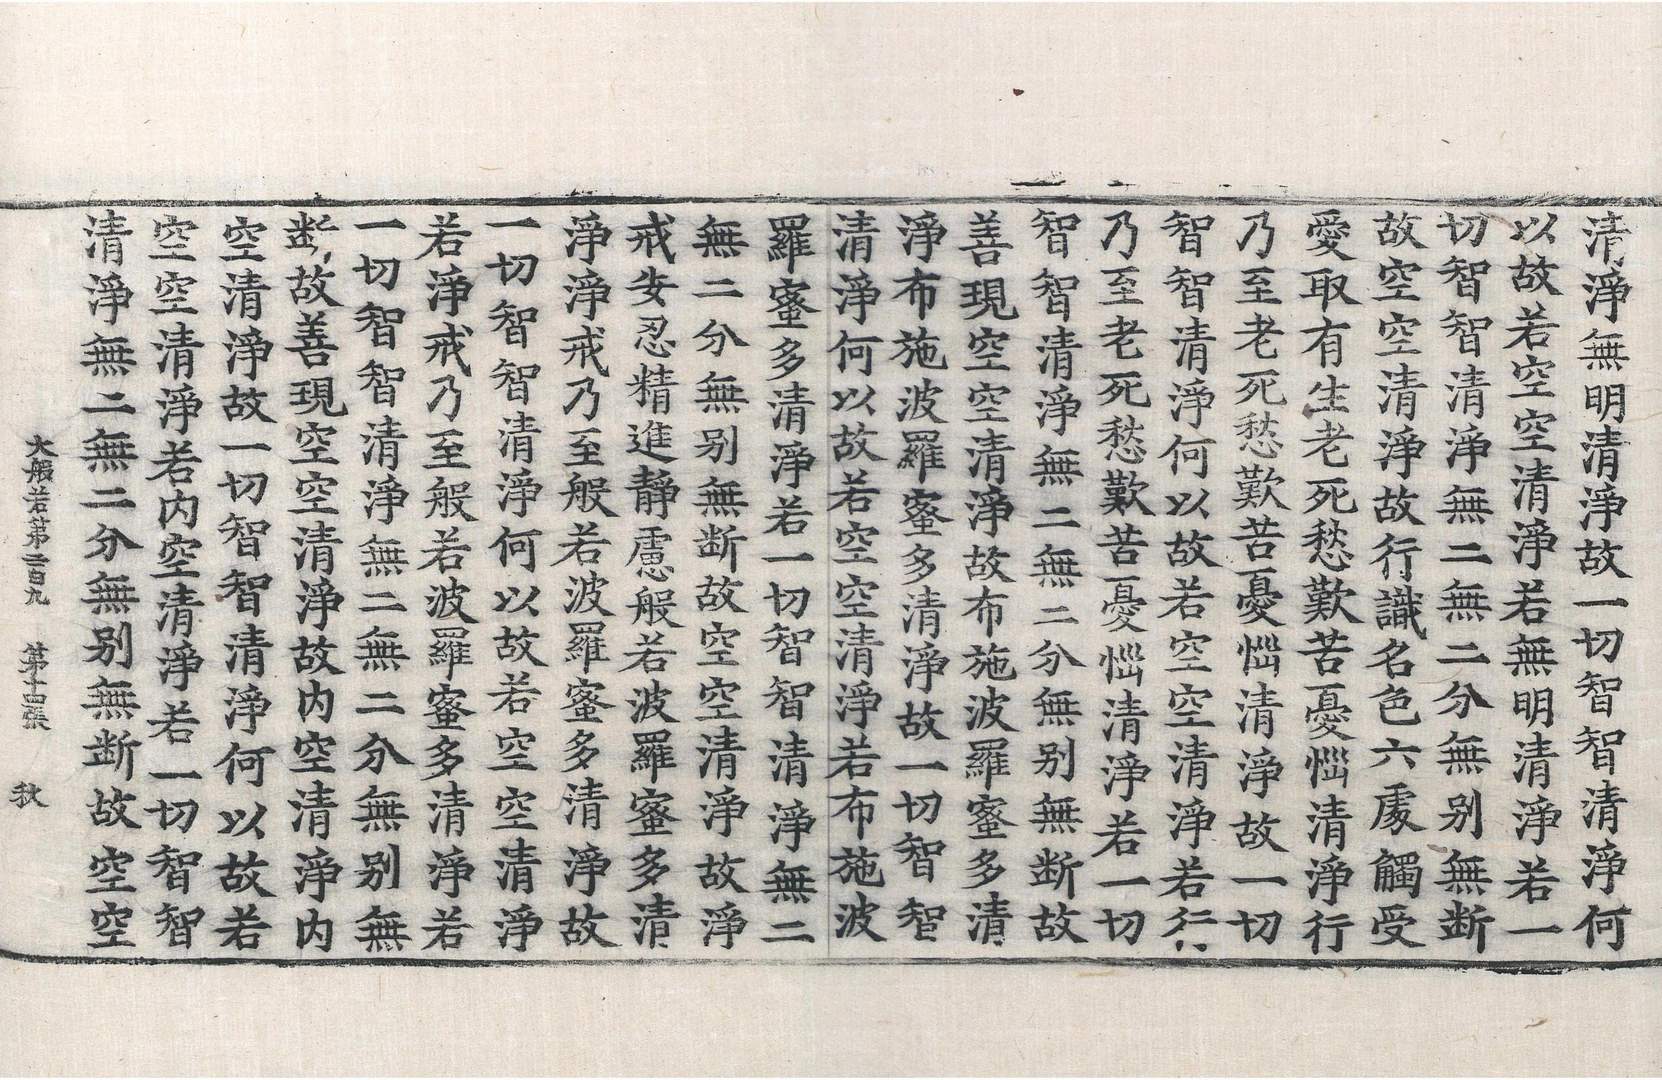 清淨無明清淨故一切智智清淨何
以故若空空清淨若無明清淨若一
切智智清淨無二無二分無别無断
故空空清淨故行識名色六處觸受
愛取有生老死愁歎苦憂惱清淨行
乃至老死愁歎苦憂惱清淨故一切
智智清淨何以故若空空清淨若行
乃至老死愁歎苦憂惱清淨若一切
智智清淨無二無二分無别無断故
善現空空清淨故布施波羅蜜多清
淨布施波羅蜜多清淨故一切智智
清淨何以故若空空清淨若布施波
羅蜜多清淨若一切智智清淨無二
無二分無别無断故空空清淨故淨
戒安忍精進静慮般若波羅蜜多清
淨淨戒乃至般若波羅蜜多清淨故
一切智智清淨何以故若空空清淨
若淨戒乃至般若波羅蜜多清淨若
一切智智清淨無二無二分無别無
断故善現空空清淨故内空清淨内
空清淨故一切智智清淨何以故若
空空清淨若内空清淨若一切智智
清淨無二無二分無别無断故空空
大般若第二百九 第十四張 秋